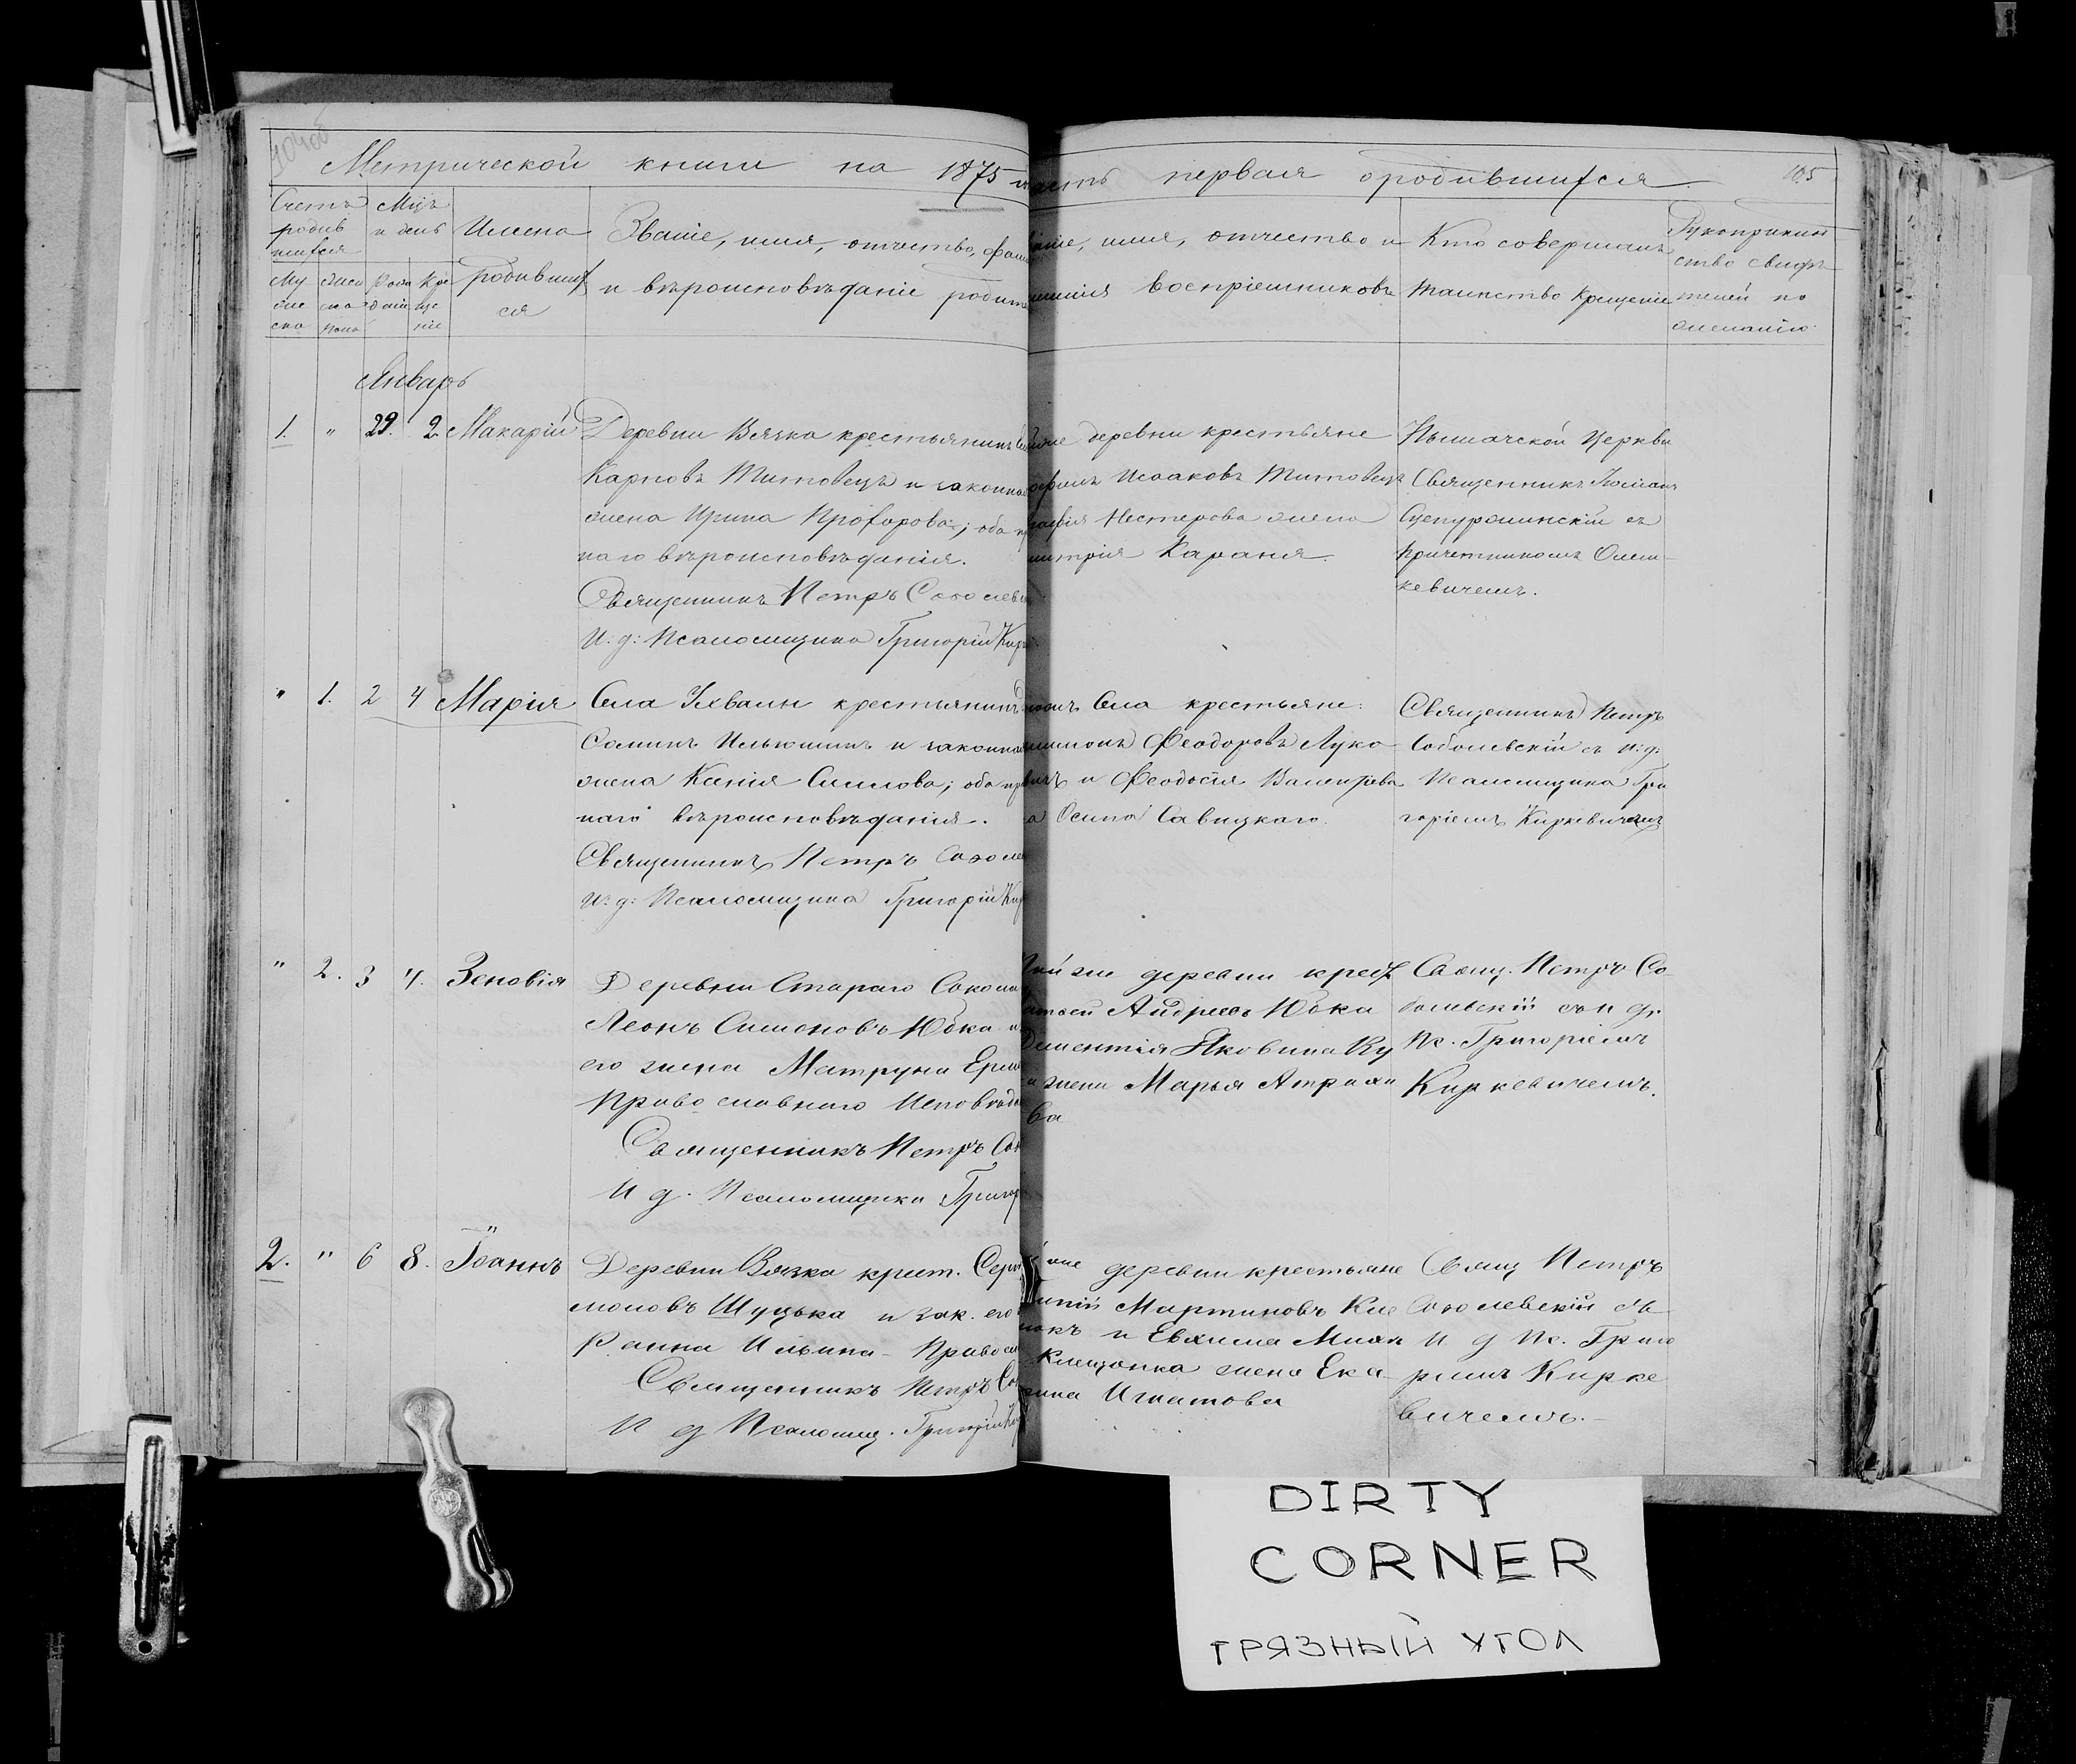 Метрической книги на 1875
часть первая о родившихся
105
Счетъ
родив
шихся
Мцъ
и день
Имена
родивших
ся
Званіе, имя, отчество, фами
и вѣроисповѣданіе родите
имя, отчество и
воспріемниковъ
Кто совершалъ
таинство крещенія
Рукоприклад
ство свидѣ
телей по
желанію
Му
же
ска
Жен
ска
Рож
денія
Кре
ще
нія
Январь
1. " 29. 2 Макарій
Деревни Вязка крестьянинъ
Карповъ Титовецъ и законная
жена Ирина Прохорова; оба
наго вѣроисповѣданія.
Священникъ Петръ Соболев
И. д: Псаломщика Григорій Кир
деревни крестьяне
Исааковъ Титовецъ
Нестерова жена
Караня.
Церкви
Священникъ
съ
причетникомъ
кевичемъ.
" 1. 2 4 Марія
Села Ухвалы крестьянинъ
и законная
жена Ксенія ; оба
наго вѣроисповѣданія.
Священникъ Петръ Соболев
И. д: Псаломщика Григорій Кир
Села крестьяне:
Феодоровъ Луко
и Феодосія
Осипа Савицкаго.
Священникъ Петръ
Соболевскій съ и: д:
Псаломщика Гри
горіемъ Киркевичемъ
" 2. 3 4. Зеновія
Деревни Стараго Сокола
Леонъ Симоновъ Юбка и
его жена Матруна
Православнаго Исповѣда
Священникъ Петръ Соб
И д. Псаломщика Григор
же деревни крест
Андреевъ Юбка
Дементія Яковина Ку
жена Марья
ва
Свящ. Петръ Со
болевскій съ и д.
Пс. Григоріемъ
Киркевичемъ.
2. " 6 8. Іоаннъ
Деревни Вязка крест.
моновъ Шуцька и зак. его
Ильина - Правосл
Священникъ Петръ Соб
И д Псаломщ. Григорій Ки
же деревни крестьяне
Мартиновъ Кле
и
Клещонка жена Ека
рина Игнатова
Свящ Петръ
Соболевскій съ
И д Пс. Григо
ріемъ Кирке
вичемъ.
DIRTY
CORNER
ГРЯЗНЫЙ УГОЛ